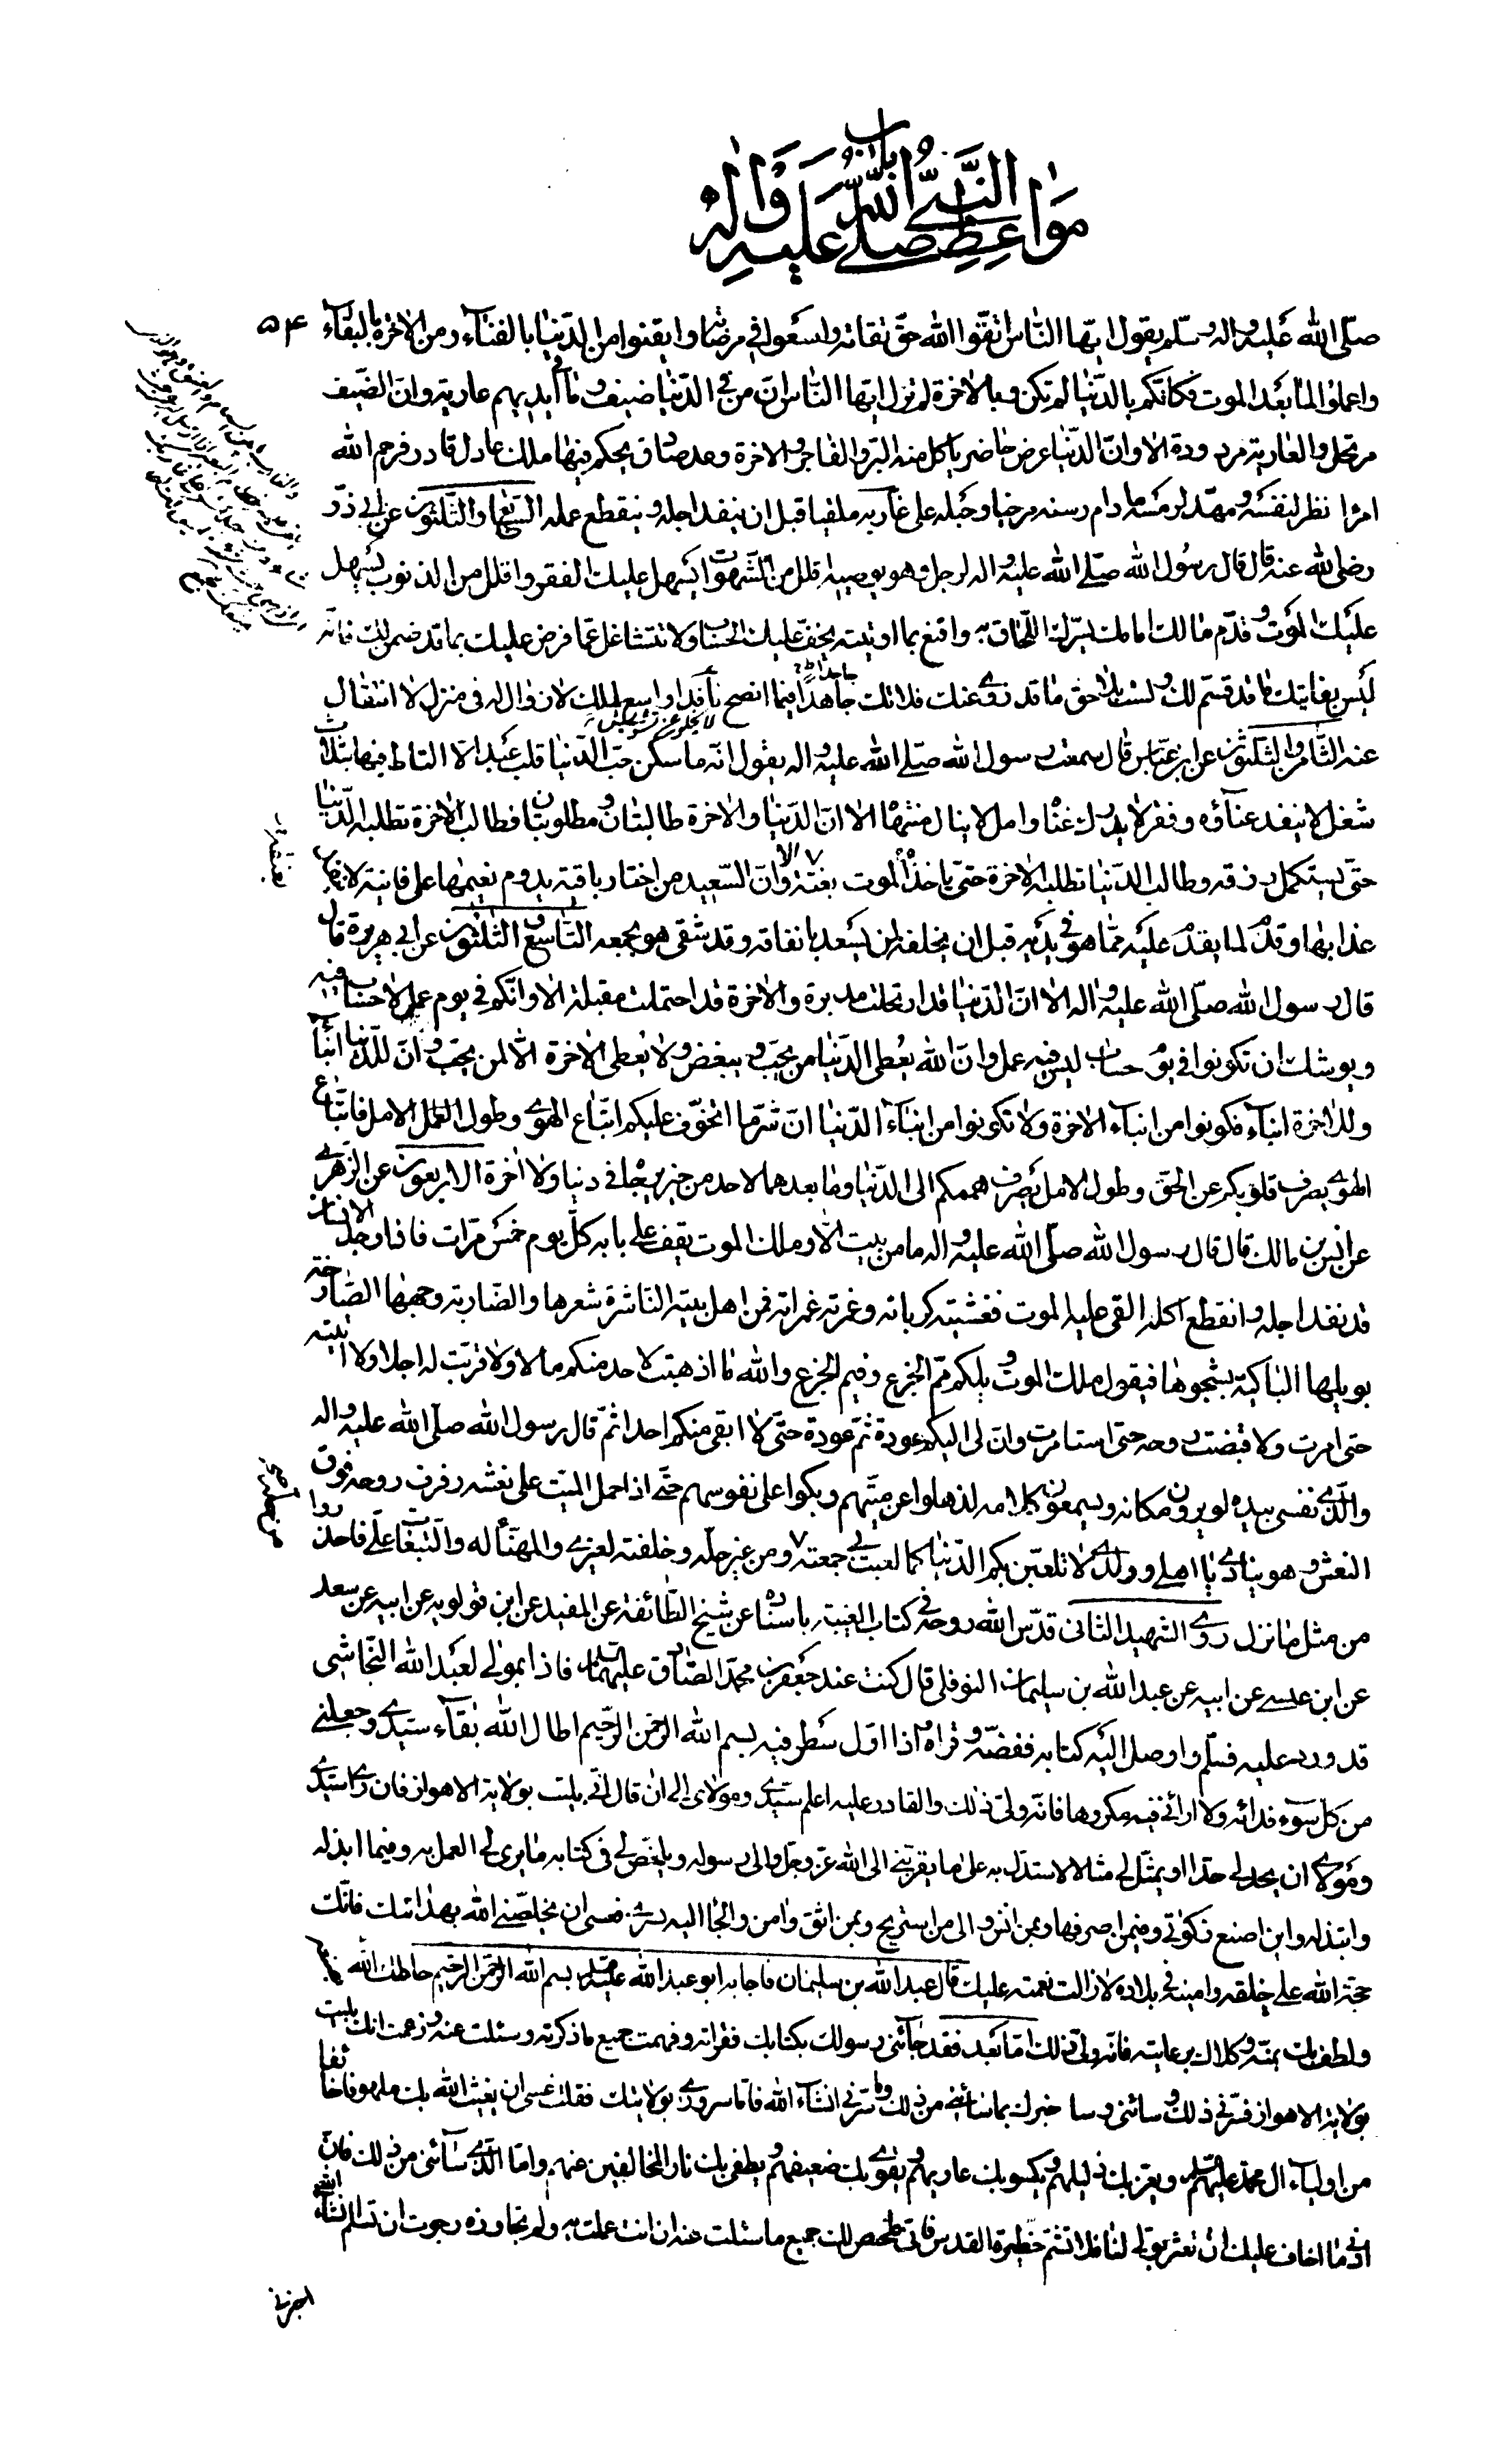 باب
مواعظ النبي صلى الله عليه واله
۵۴
صلّى الله عليه واله وسلم يقول ايّها النّاس اتّقوا الله حقّ تقاته واسعوا في مرضاته وايقنوا من الدّنيا بالفناء ومن الاخرة بالبقاء
واعملوا لما بعد الموت فكانّكم بالدّنيا لم تكن وبالاخرة لم تزل ايّها النّاس انّ من في الدّنيا ضيف وما في ايديهم عارية وانّ الضّيف
مرتحل والعارية مردودة الا وانّ الدّنيا عرض حاضر ياكل منه البرّ والفاجر والاخرة وعد صادق يحكم فيها ملك عادل قادر فرحم الله
امرا نظر لنفسه ومهّد لرمسه ما دام رسنه مرخيا وحبله على غاربه ملقيا قبل ان ينفد اجله وينقطع عمله السّابع والثّلثون عن ابي ذرّ
رضى الله عنه قال قال رسول الله صلّى الله عليه واله لرجل وهو يوصيه اقلل من الشّهوات يسهل عليك الفقر واقلل من الذنوب يسهل
عليك الموت وقدّم مالك امامك يسرّك اللّحاق به واقنع بما اوتيته يخفّ عليك الحساب ولا تتشاغل عمّا فرض عليك بما قد ضمن لك فانّه
ليس بفايتك ما قد قسّم لك ولست بلاحق ما قد زوى عنك فلا تك جاهدا فيما انصح نافدا واسع لملك لا زوال له في منزل لا انتقال
عنه الثّامن والثلثون عن ابن عبّاس قال سمعت رسول الله صلّى الله عليه واله يقول انّه ما سكن حبّ الدّنيا قلب عبد الّا التاط فيها بثلاث
شغل لا ينفد عناؤه وفقر لا يدرك غناه وامل لا ينال منتهاه الا انّ الدّنيا والاخرة طالبتان ومطلوبتان فطالب الاخرة تطلبه الدّنيا
حتّى يستكمل رزقه وطالب الدّنيا تطلبه الاخرة حتّى ياخذه الموت بغتة الا وانّ السّعيد من اختار باقية يدوم نعيمها على فانية لا ينفد
عذابها وقدّم لما يقدم عليه ممّا هو في يديه قبل ان يخلفه لمن يسعد بانفاقه وقد شقى هو بجمعه التّاسع والثلثون عن ابي هريرة قال
قال رسول الله صلّى الله عليه واله الا انّ الدّنيا قد ارتحلت مدبرة والاخرة قد احتملت مقبلة الا وانّكم في يوم عمل لا حساب فيه
ويوشك ان تكونوا في يوم حساب ليس فيه عمل وانّ الله يعطى الدّنيا من يحبّ ويبغض ولا يعطى الاخرة الّا لمن يحبّ وانّ للدّنيا ابناء
وللاخرة ابناء فكونوا من ابناء الاخرة ولا تكونوا من ابناء الدّنيا انّ شرّ ما اتخوّف عليكم اتّباع الهوى وطول الامل فاتّباع
الهوى يصرف قلوبكم عن الحقّ وطول الامل يصرف هممكم الى الدّنيا وما بعدهما لاحد من خير يرجا في دنيا ولا اخرة الاربعون عن الزّهرى
عن انس بن مالك قال قال رسول الله صلّى الله عليه واله ما من بيت الّا وملك الموت يقف على بابه كلّ يوم خمس مرّات فاذا وجد الانسان
قد نفد اجله وانقطع اكله القى عليه الموت فغشيته كرباته وغمرته غمراته فمن اهل بيته الناشرة شعرها والضّاربة وجهها الصّارخة
بويلها الباكية بشجوها فيقول ملك الموت ويلكم ممّ الجزع وفيم الجزع والله ما اذهبت لاحد منكم مالا ولا قرّبت له اجلا ولا اتيته
حتى امرت ولا قبضت روحه حتى استامرت وانّ لى اليكم عودة ثمّ عودة حتّى لا ابقى منكم احدا ثمّ قال رسول الله صلّى الله عليه واله
والّذى نفسى بيده لو يرون مكانه ويسمعون كلامه لذهلوا عن ميّتهم وبكوا على نفوسهم حتّى اذا حمل الميّت على نعشه رفرف روحه فوق
النعش وهو ينادى يا اهلى وولدى لا تلعبنّ بكم الدّنيا كما لعبت بي جمعته ومن غير حلّه وخلفته لغيرى والمهنّأ له والتّبعات علىّ فاحذروا
من مثل ما نزل روى الشهيد الثانى قدّس الله روحه في كتاب الغيبة باسناده عن شيخ الطّائفة عن المفيد عن ابن قولويه عن ابيه عن سعد
عن ابن عيسى عن ابيه عن عبد الله بن سليمان النوفلى قال كنت عند جعفر بن محمّد الصّادق عليهما السلام فاذا بمولى لعبد الله النّجاشى
قد ورد عليه فسلّم واوصل اليه كتابه ففضّه وقراه فاذا اوّل سطر فيه بسم الله الرّحمن الرّحيم اطال الله بقاء سيّدى وجعلنى
من كلّ سوء فدائه ولا ارانى فيه مكروها فانّه ولىّ ذلك والقادر عليه اعلم سيّدى ومولاى الى ان قال انّى بليت بولاية الاهواز فان راى سيّدى
ومولاى ان يحد لى حدّا او يمثّل لى مثالا لاستدلّ به على ما يقرّبنى الى الله عزّ وجلّ والى رسوله ويلخّص لى في كتابه ما يرى لى العمل به وفيما ابذله
وابتذله واين اضع زكوتى وفيمن اصرفها وبمن انس والى من استريح وبمن اثق وامن والجأ اليه في سرّى فعسى ان يخلّصنى الله بهدايتك فانّك
حجّة الله على خلقه وامينه في بلاده لا زالت نعمته عليك قال عبد الله بن سليمان فاجابه ابو عبد الله عليه السلام بسم الله الرّحمن الرّحيم حاطك الله بصنعه
ولطف بك بمنّه وكلاك برعايته فانّه ولىّ ذلك امّا بعد فقد جآئنى رسولك بكتابك فقراته وفهمت جميع ما ذكرته وسئلت عنه وزعمت انّك بليت
بولاية الاهواز فسرّنى ذلك وسائنى وساخبرك بما سائنى من ذلك وما سرّنى انشاء الله فامّا سرورى بولايتك فقلت عسى ان يغيث الله بك ملهوفا خائفا
من اولياء ال محمّد عليهم السلام ويعزّ بك ذليلهم ويكسو بك عاريهم ويقوّى بك ضعيفهم ويطفى بك نار المخالفين عنهم وامّا الّذى سائنى من ذلك فانّ
ادنى ما اخاف عليك ان تعثر بولىّ لنا فلا تشمّ حظيرة القدس فانّى ملخّص لك جميع ما سئلت عنه ان انت عملت به ولم تجاوزه رجوت ان تسلم انشاء الله
اخبرنى